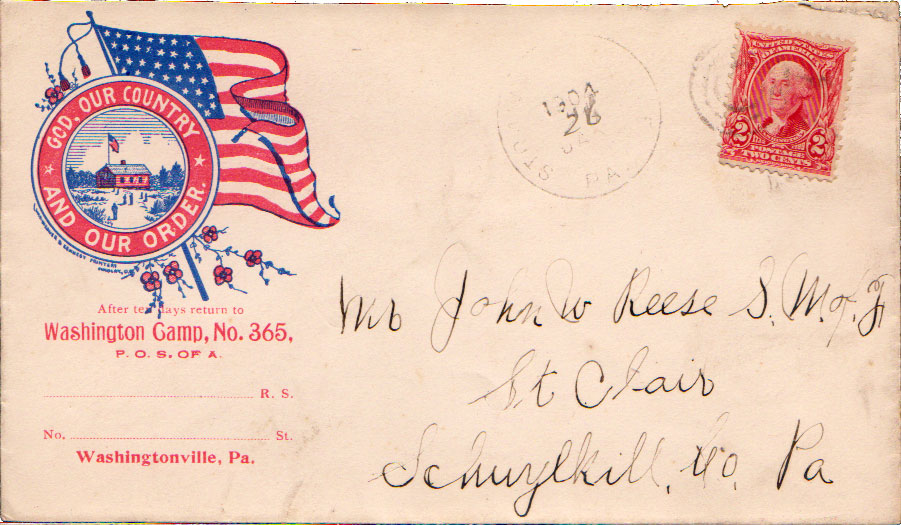 GOD, OUR COUNTRY
AND OUR ORDER.
After ten days return to
Washington Camp, No. 365,
P. O. S. OF A.
R. S.
No. St.
Washingtonville, Pa.
1904
26
PA.
UNITED STATES
OF AMERICA
2 2
POSTAGE
TWO CENTS
Mr John W Reese S. M. of F
St Clair
Schuylkill, Co. Pa